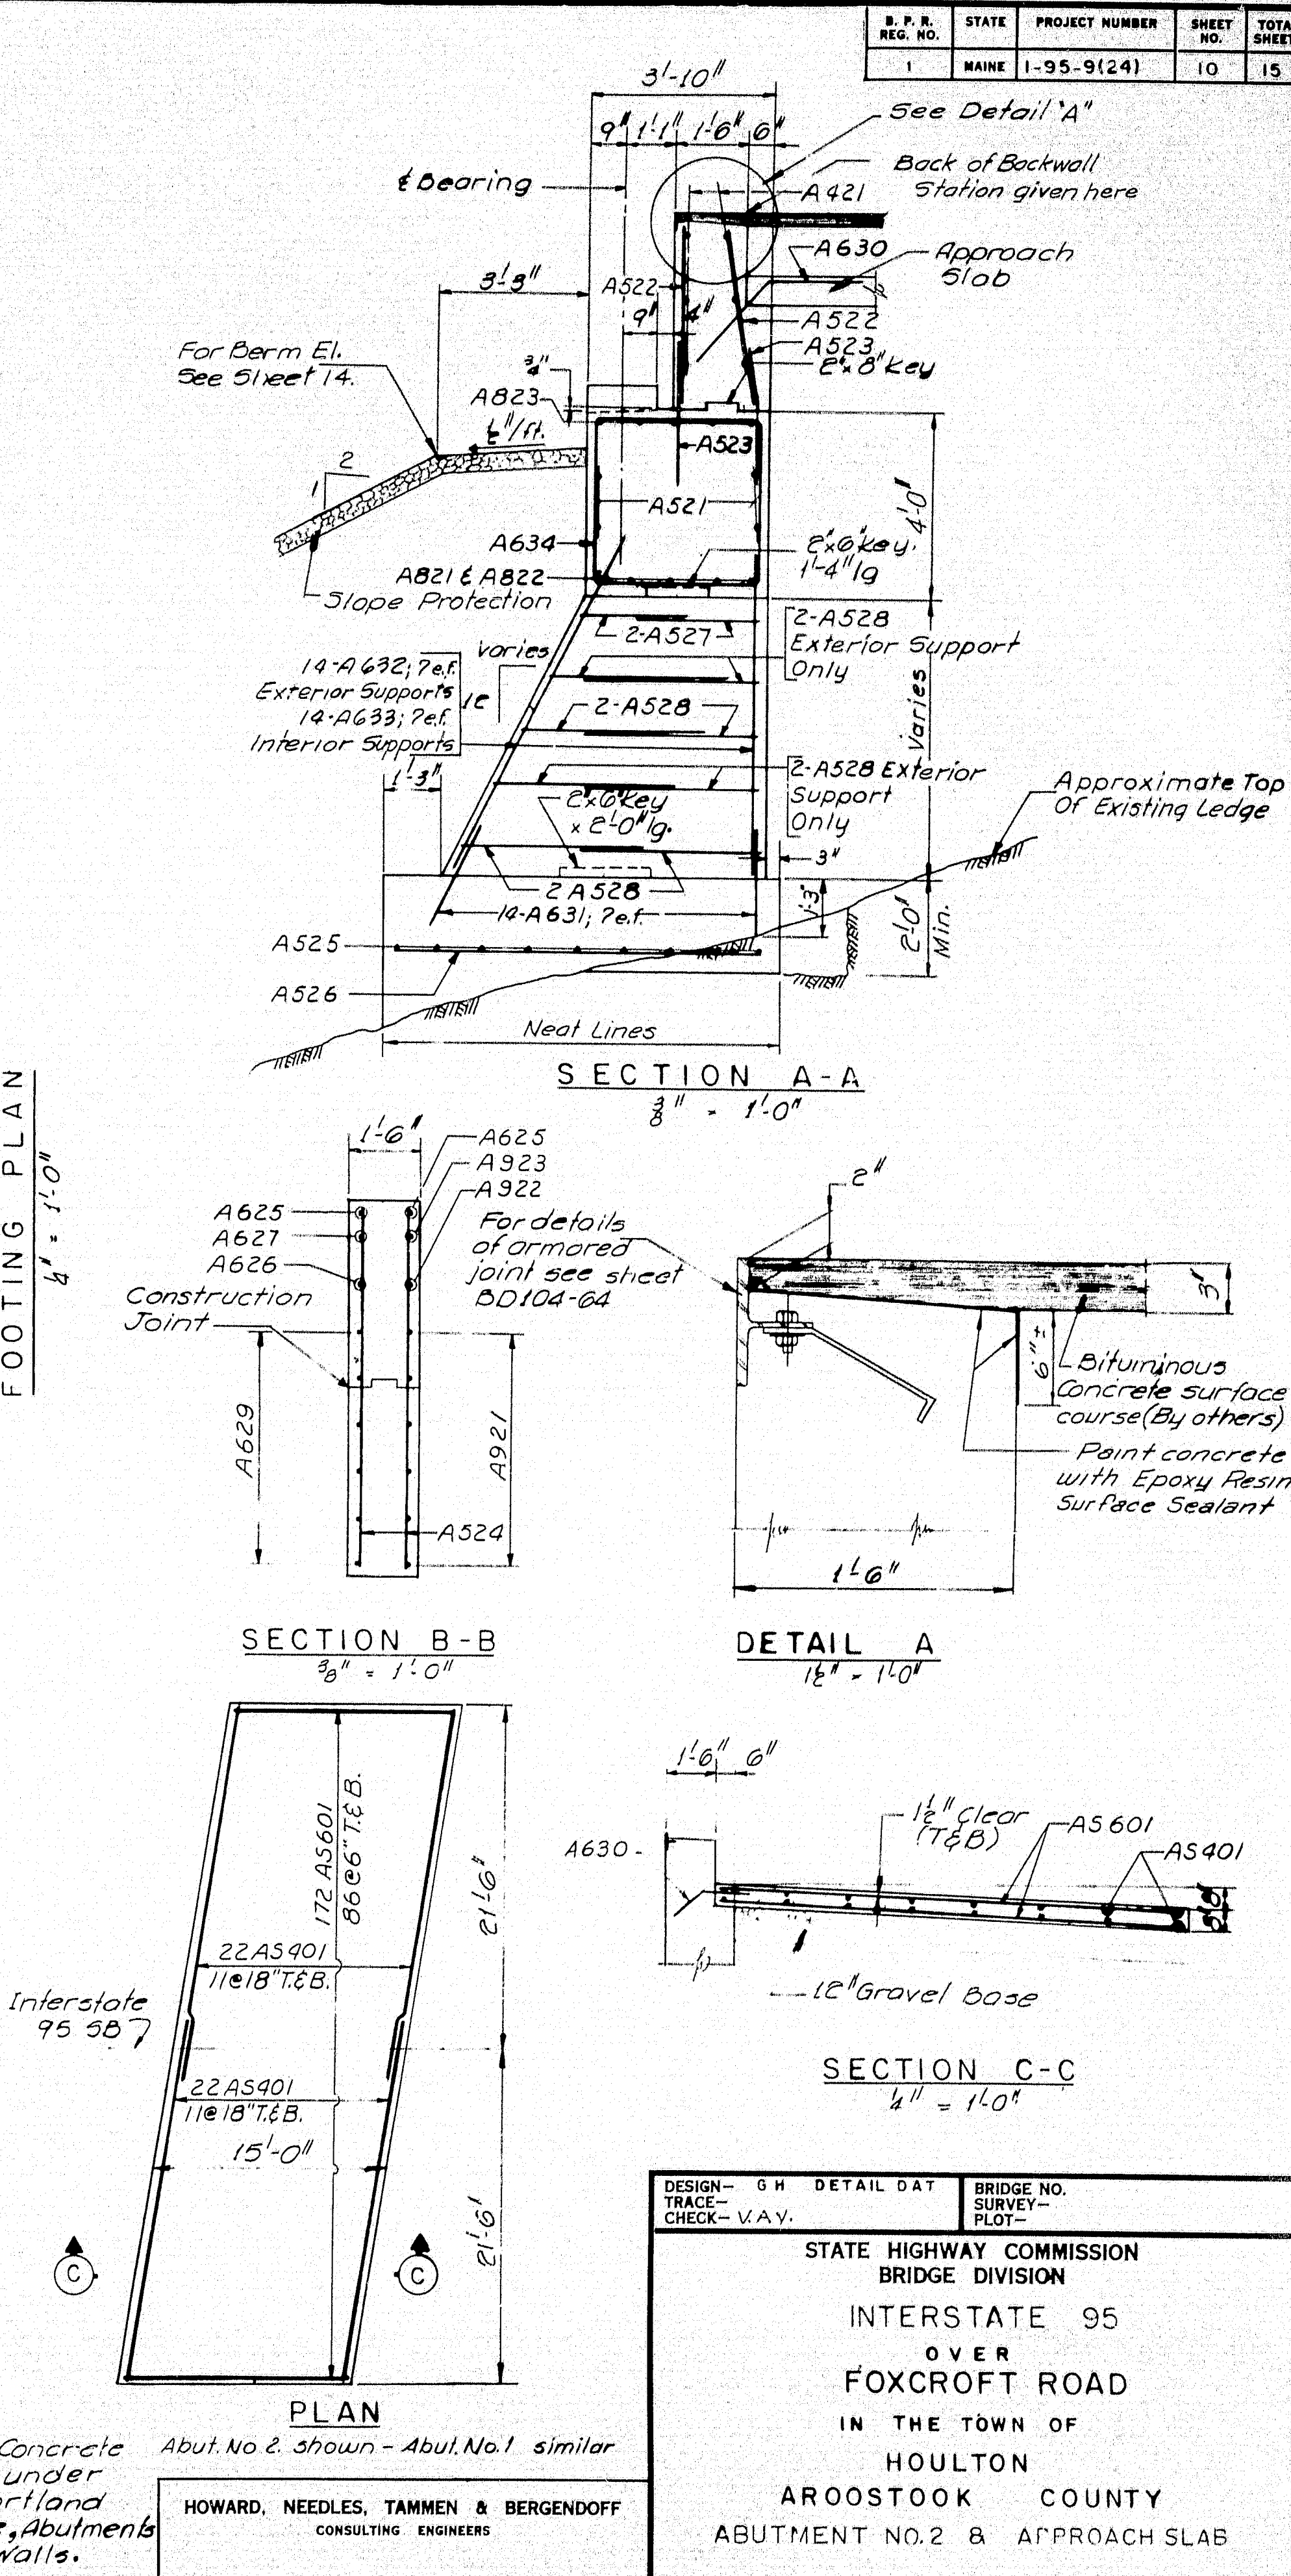 B. P. R. REG. NO. STATE PROJECT NUMBER SHEET NO. TOTA SHEET
1 MAINE I-95-9(24) 10 15
3'-10"
9" 1'-1" 1'-6" 6"
See Detail "A"
℄ Bearing
Back of Backwall
Station given here
A421
A630
Approach
Slab
3'-3"
A522
9" 4"
A522
A523
2"x8" Key
For Berm El.
See Sheet 14.
3/4"
A823
1/2"/ft.
A523
2
1
A521
4'-0"
A634
2"x6" key.
1'-4" lg
A821 & A822
Slope Protection
2-A527
2-A528
Exterior Support
Only
varies
12
14-A632; 7e.f.
Exterior Supports
14-A633; 7e.f.
Interior Supports
2-A528
Varies
1'-3"
2-A528 Exterior
Support
Only
2"x6" key
x 2'-0" lg.
Approximate Top
Of Existing Ledge
3"
2 A528
14-A631; 7e.f.
1'-3"
2'-0"
Min.
A525
A526
Neat Lines
SECTION A-A
3/8" = 1'-0"
FOOTING PLAN
1/4" = 1'-0"
1'-6"
A625
A923
A922
A625
A627
A626
Construction
Joint
A629
A921
A524
SECTION B-B
3/8" = 1'-0"
2"
For details
of armored
joint see sheet
BD104-64
3"
6"±
Bituminous
Concrete surface
course (By others)
Paint concrete
with Epoxy Resin
Surface Sealant
1'-6"
DETAIL A
1½" = 1'-0"
172 AS601
86@6" T.&B.
21'-6"
22AS401
11@18"T.&B.
Interstate
95 SB
22AS401
11@18"T.&B.
15'-0"
21'-6"
C C
PLAN
Abut. No 2. shown - Abut. No.1 similar
1'-6" 6"
A630
1½" Clear
(T&B)
AS601
AS401
12" Gravel Base
SECTION C-C
1/4" = 1'-0"
Concrete
under
rtland
, Abutments
Walls.
HOWARD, NEEDLES, TAMMEN & BERGENDOFF
CONSULTING ENGINEERS
DESIGN- GH DETAIL DAT
TRACE-
CHECK- V.A.V.
BRIDGE NO.
SURVEY-
PLOT-
STATE HIGHWAY COMMISSION
BRIDGE DIVISION
INTERSTATE 95
OVER
FOXCROFT ROAD
IN THE TOWN OF
HOULTON
AROOSTOOK COUNTY
ABUTMENT NO.2 & APPROACH SLAB